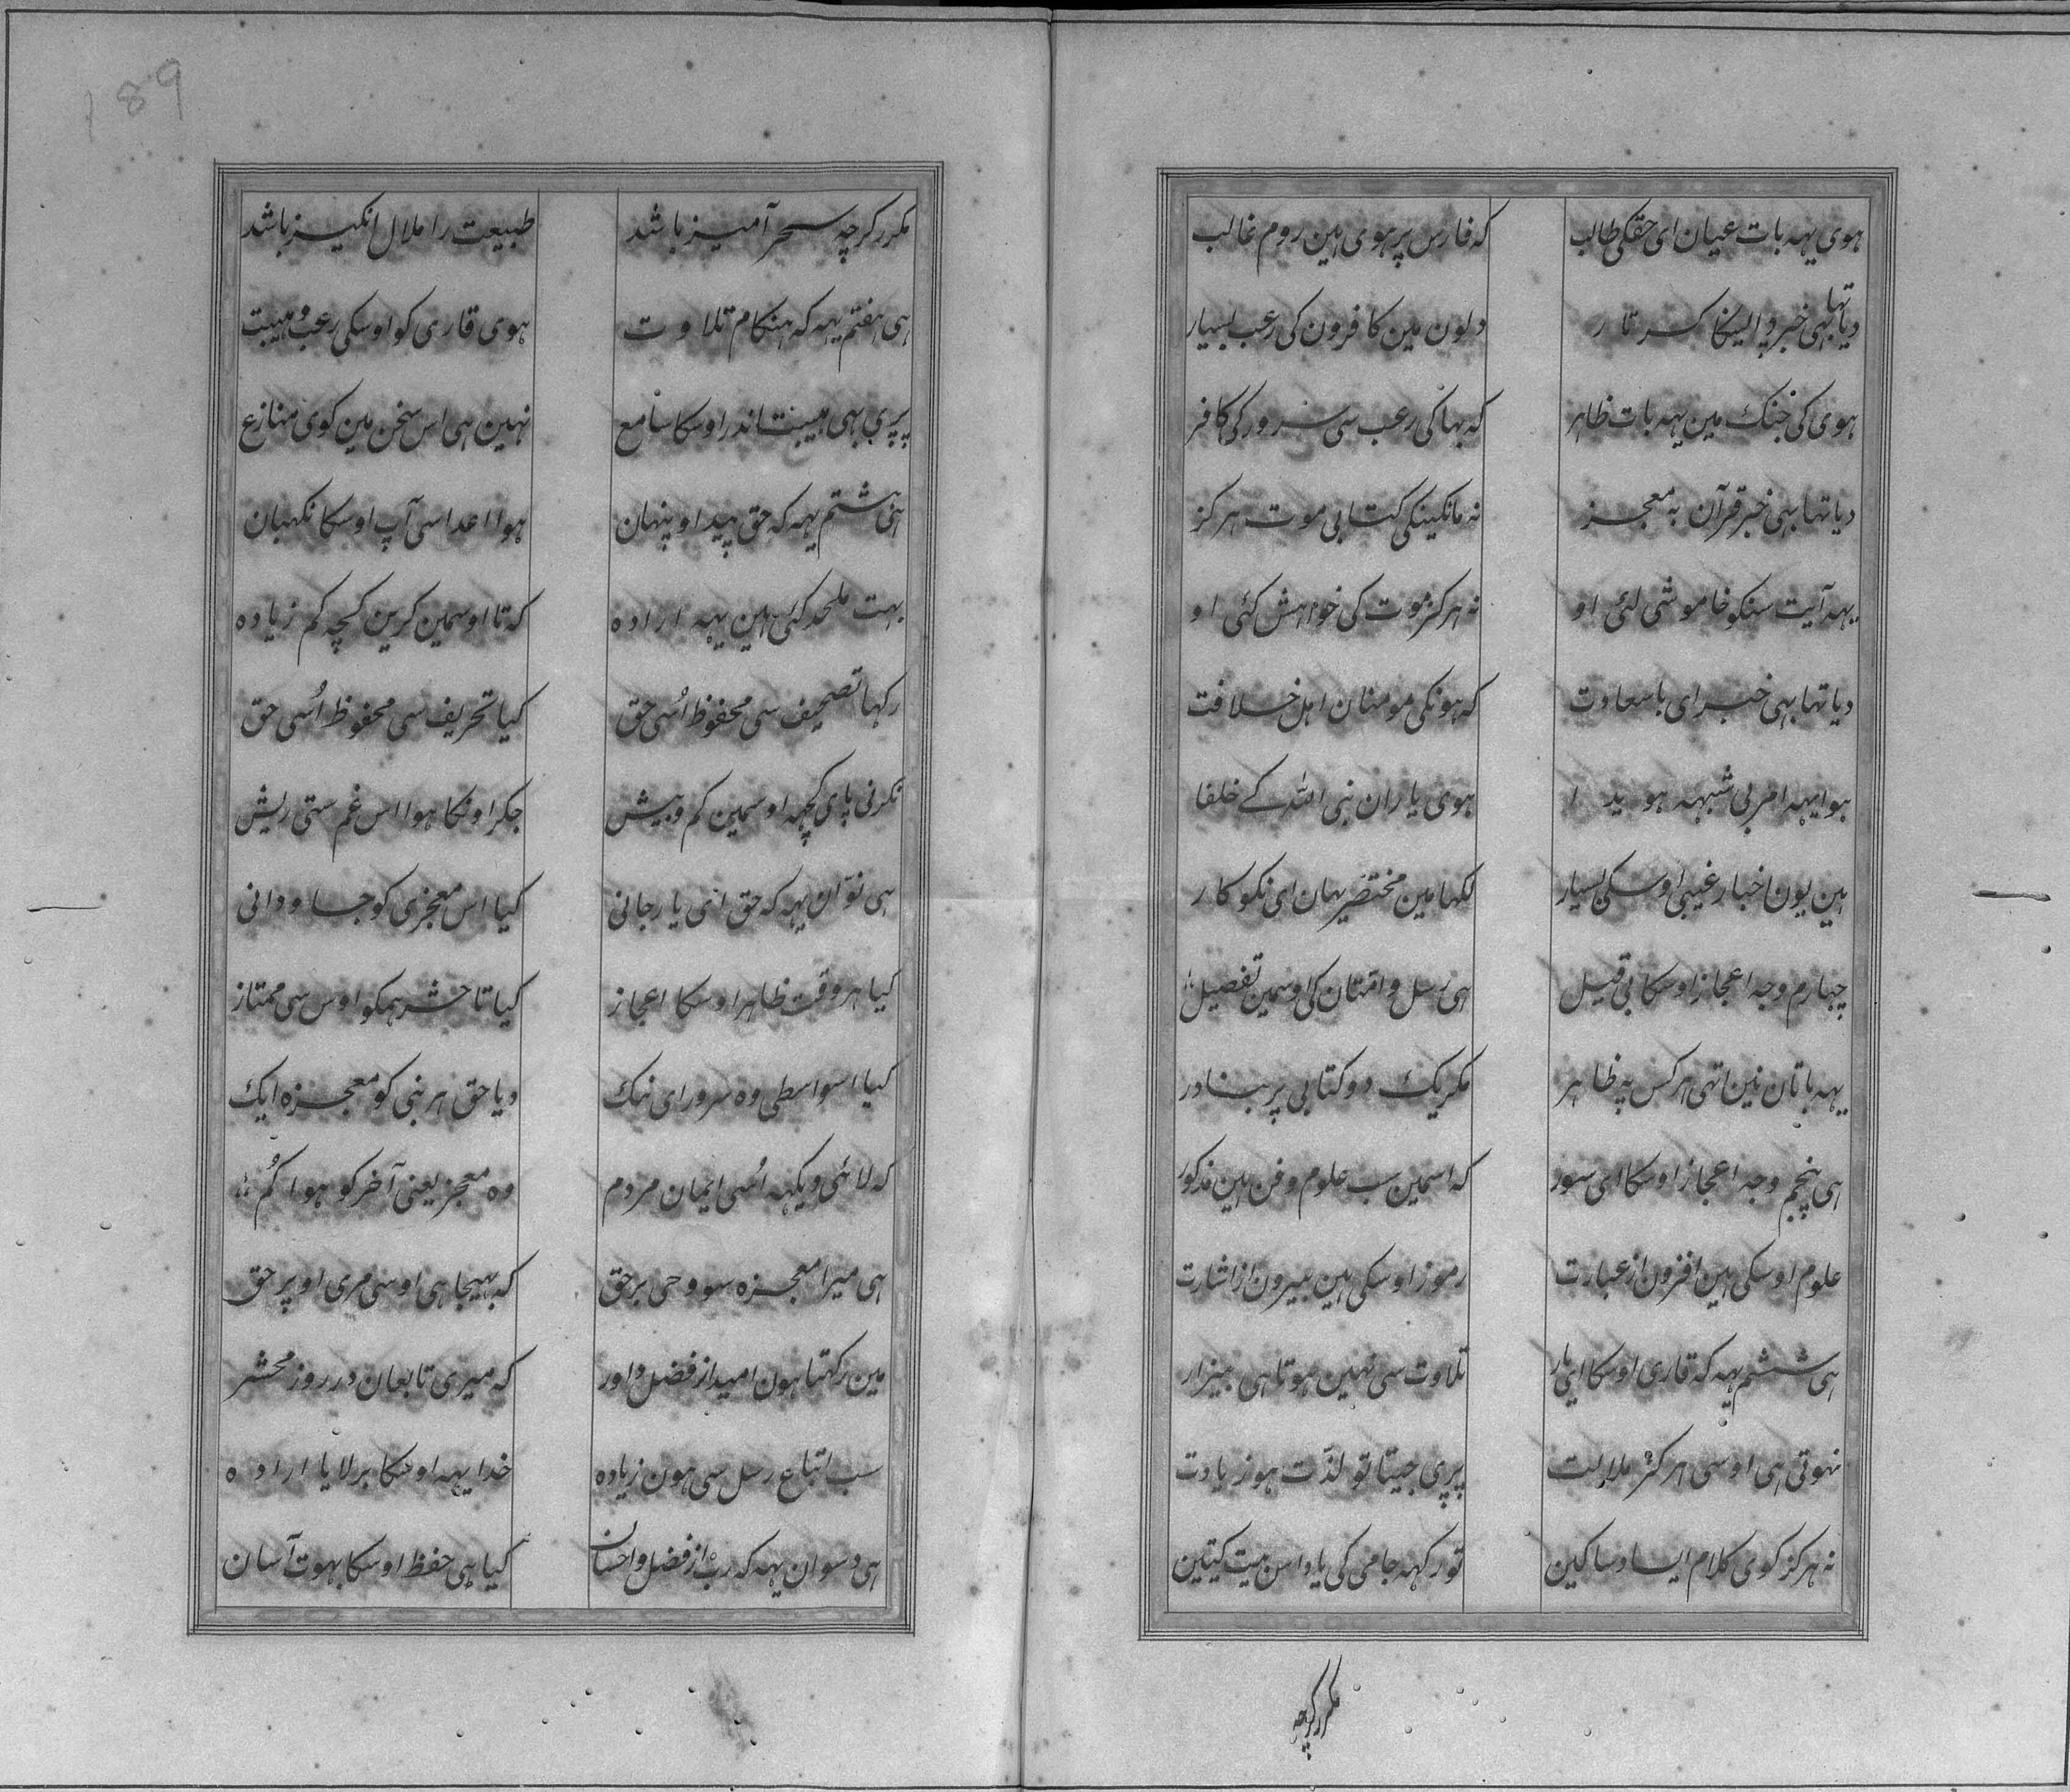 ہوی یہہ بات عیان ای حقکی طالب کہ فارس پر ہوی ہین روم غالب
دیا تہا بہی خبر و ایسکا کرتار دلون مین کافرون کی رعب بسیار
ہوی کی جنک مین یہہ بات ظاہر کہ بہاکی رعب سی سرور کی کافر
دیا تہا بہی خبر قرآن بہ معجز نہ مانکینکی کتابی موت ہرکز
یہہ آیت سنکو خاموشی لئی او نہ ہرکز موت کی خواہش کئی او
دیا تہا بہی خبر ای با سعادت کہ ہونکی مومنان اہل خلافت
ہوا یہہ امر بی شبہہ ہویدا ہوی یاران نبی اللہ کے خلفا
ہین یون اخبار غیبی اوسکی بسیار لکہا مین مختصر یہان ای نکوکار
چہارم وجہ اعجاز اوسکا بی قیل ہی رسل و امتان کی اوسمین تفصیل
یہہ باتان نین اتہی ہر کس پہ ظاہر مکر یک دو کتابی پر بنادر
ہی پنجم وجہ اعجاز اوسکا ای سور کہ اسمین سب علوم و فن ہین مذکور
علوم اوسکی ہین افزون از عبارت رموز اوسکی ہین بیرون از اشارت
ہی ششم یہہ کہ قاری اوسکا ای یار تلاوت سی نہین ہوتا ہی بیزار
نہوتی ہی اوسی ہرکز ملالت پڑی جیتا تو لذّت ہو زیادت
نہ ہرکز کوی کلام ایسا دسا کین تو رکہہ جامی کی یاد اس بیت کیتین
مکرر کرچہ
189
مکرر کرچہ سحر آمیز باشد طبیعت را ملال انکیز باشد
ہی ہفتم یہہ کہ ہنکام تلاوت ہوی قاری کو اوسکی رعب و ہیبت
پڑی بہی ہیبت اندر اوسکا سامع نہین ہی اس سخن مین کوی منازع
ہی ہشتم یہہ کہ حق پیدا و پنہان ہوا اعدا سی آپ اوسکا نکہبان
بہت ملحد کئی ہین یہہ ارادہ کہ تا اوسمین کرین کچہ کم زیادہ
رکہا تصحیف سی محفوظ اُسی حق کیا تحریف سی محفوظ اُسی حق
نکرنی پای کچہہ اوسمین کم و بیش جکر اونکا ہوا اس غم ستی ریش
ہی نوّان یہہ کہ حق ای یار جانی کیا اس معجزی کو جاودانی
کیا ہر وقت ظاہر اوسکا اعجاز کیا تا حشر ہمکو اوس سی ممتاز
کیا اسواسطی وہ سرور ای نیک دیا حق ہر نبی کو معجزہ ایک
کہ لائی دیکہہ اُسی ایمان مردم وہ معجز یعنی آخر کو ہوا کُم
ہی میرا معجزہ سو وحی بر حق کہ بہیجا ہی اوسی مری اوپر حق
مین رکہتا ہون امید از فضل داور کہ میری تابعان در روز محشر
سب اتباع رسل سی ہون زیادہ خدا یہہ اوسکا برلایا ارادہ
ہی دسوان یہہ کہ رب از فضل و احسان کیا ہی حفظ اوسکا بہوت آسان